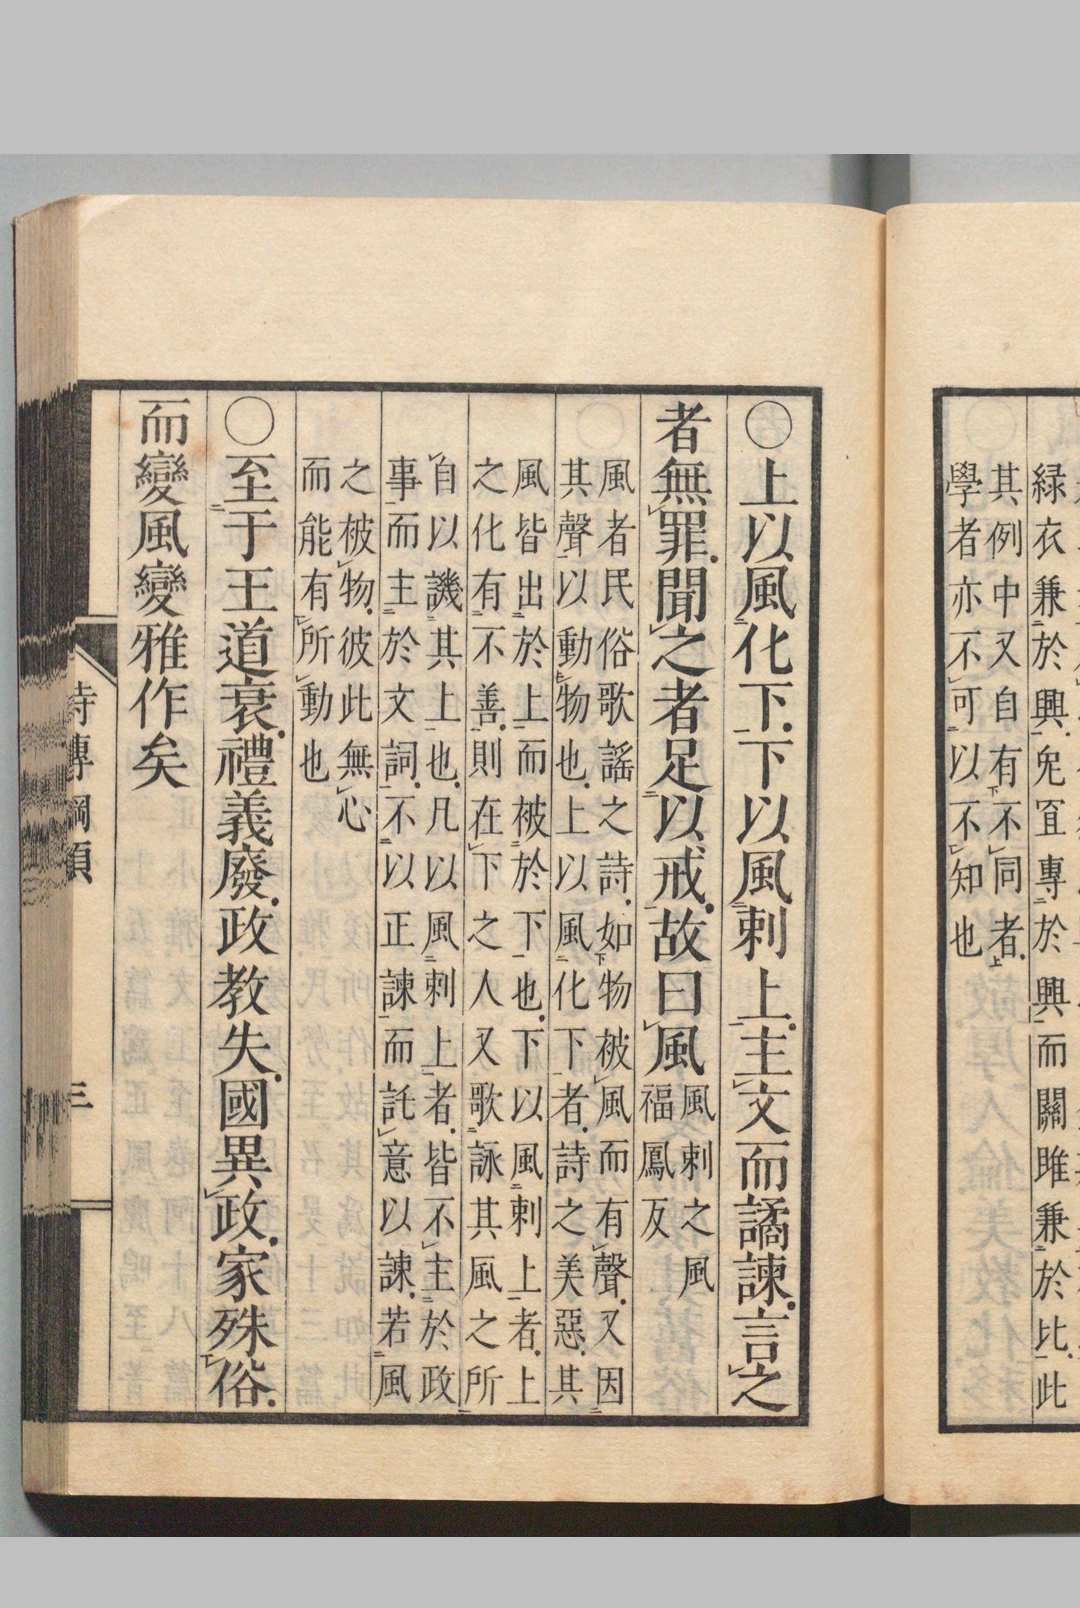 緑衣兼於興兔冝專於興而關雎兼於比此
其例中又自有不同者
學者亦不可以不知也
〇上以風化下下以風刺上主文而譎諫言之
者無罪聞之者足以戒故曰風
風刺之風
福鳳反
風者民俗歌謡之詩如物被風而有聲又因
其聲以動物也上以風化下者詩之美惡其
風皆出於上而被於下也下以風刺上者上
之化有不善則在下之人又歌詠其風之所
自以譏其上也凡以風刺上者皆不主於政
事而主於文詞不以正諫而託意以諫若風
之被物彼此無心
而能有所動也
〇至于王道衰禮義廢政教失國異政家殊俗
而變風變雅作矣
詩傳綱領
三